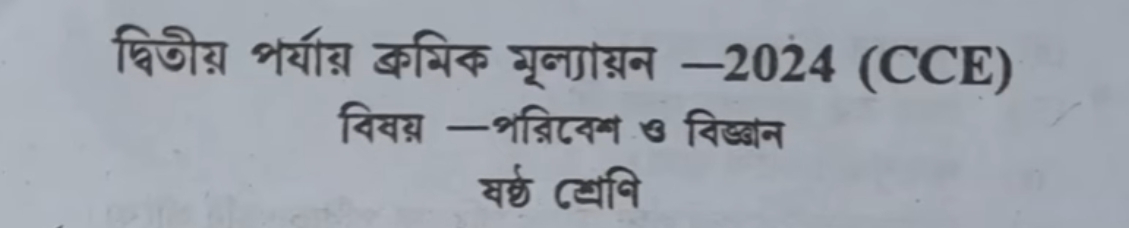 দ্বিতীয় পর্যায় ক্রমিক মূল্যায়ন —2024 (CCE)
বিষয় —পরিবেশ ও বিজ্ঞান
ষষ্ঠ শ্রেণি